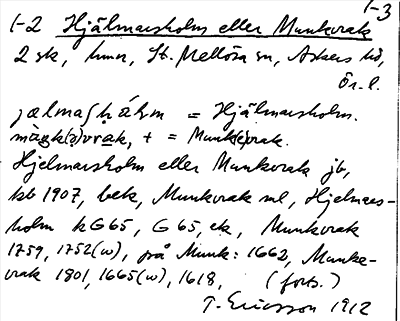 1-3
1-2 Hjälmarsholm eller Munkorak
2 sk, hmn, St. Mellösa sn, Askers hd,
Ör. l.
= Hjälmarsholm.
+ = Munk(e)orak.
Hjelmarsholm eller Munkorak jb,
kb 1907, bek, Munkorak ml, Hjelmars-
holm kG65, G65, ek, Munkorak
1759, 1752(w), på Munk: 1662, Munke-
orak 1801, 1665(w), 1618, (forts.)
T. Ericsson 1912